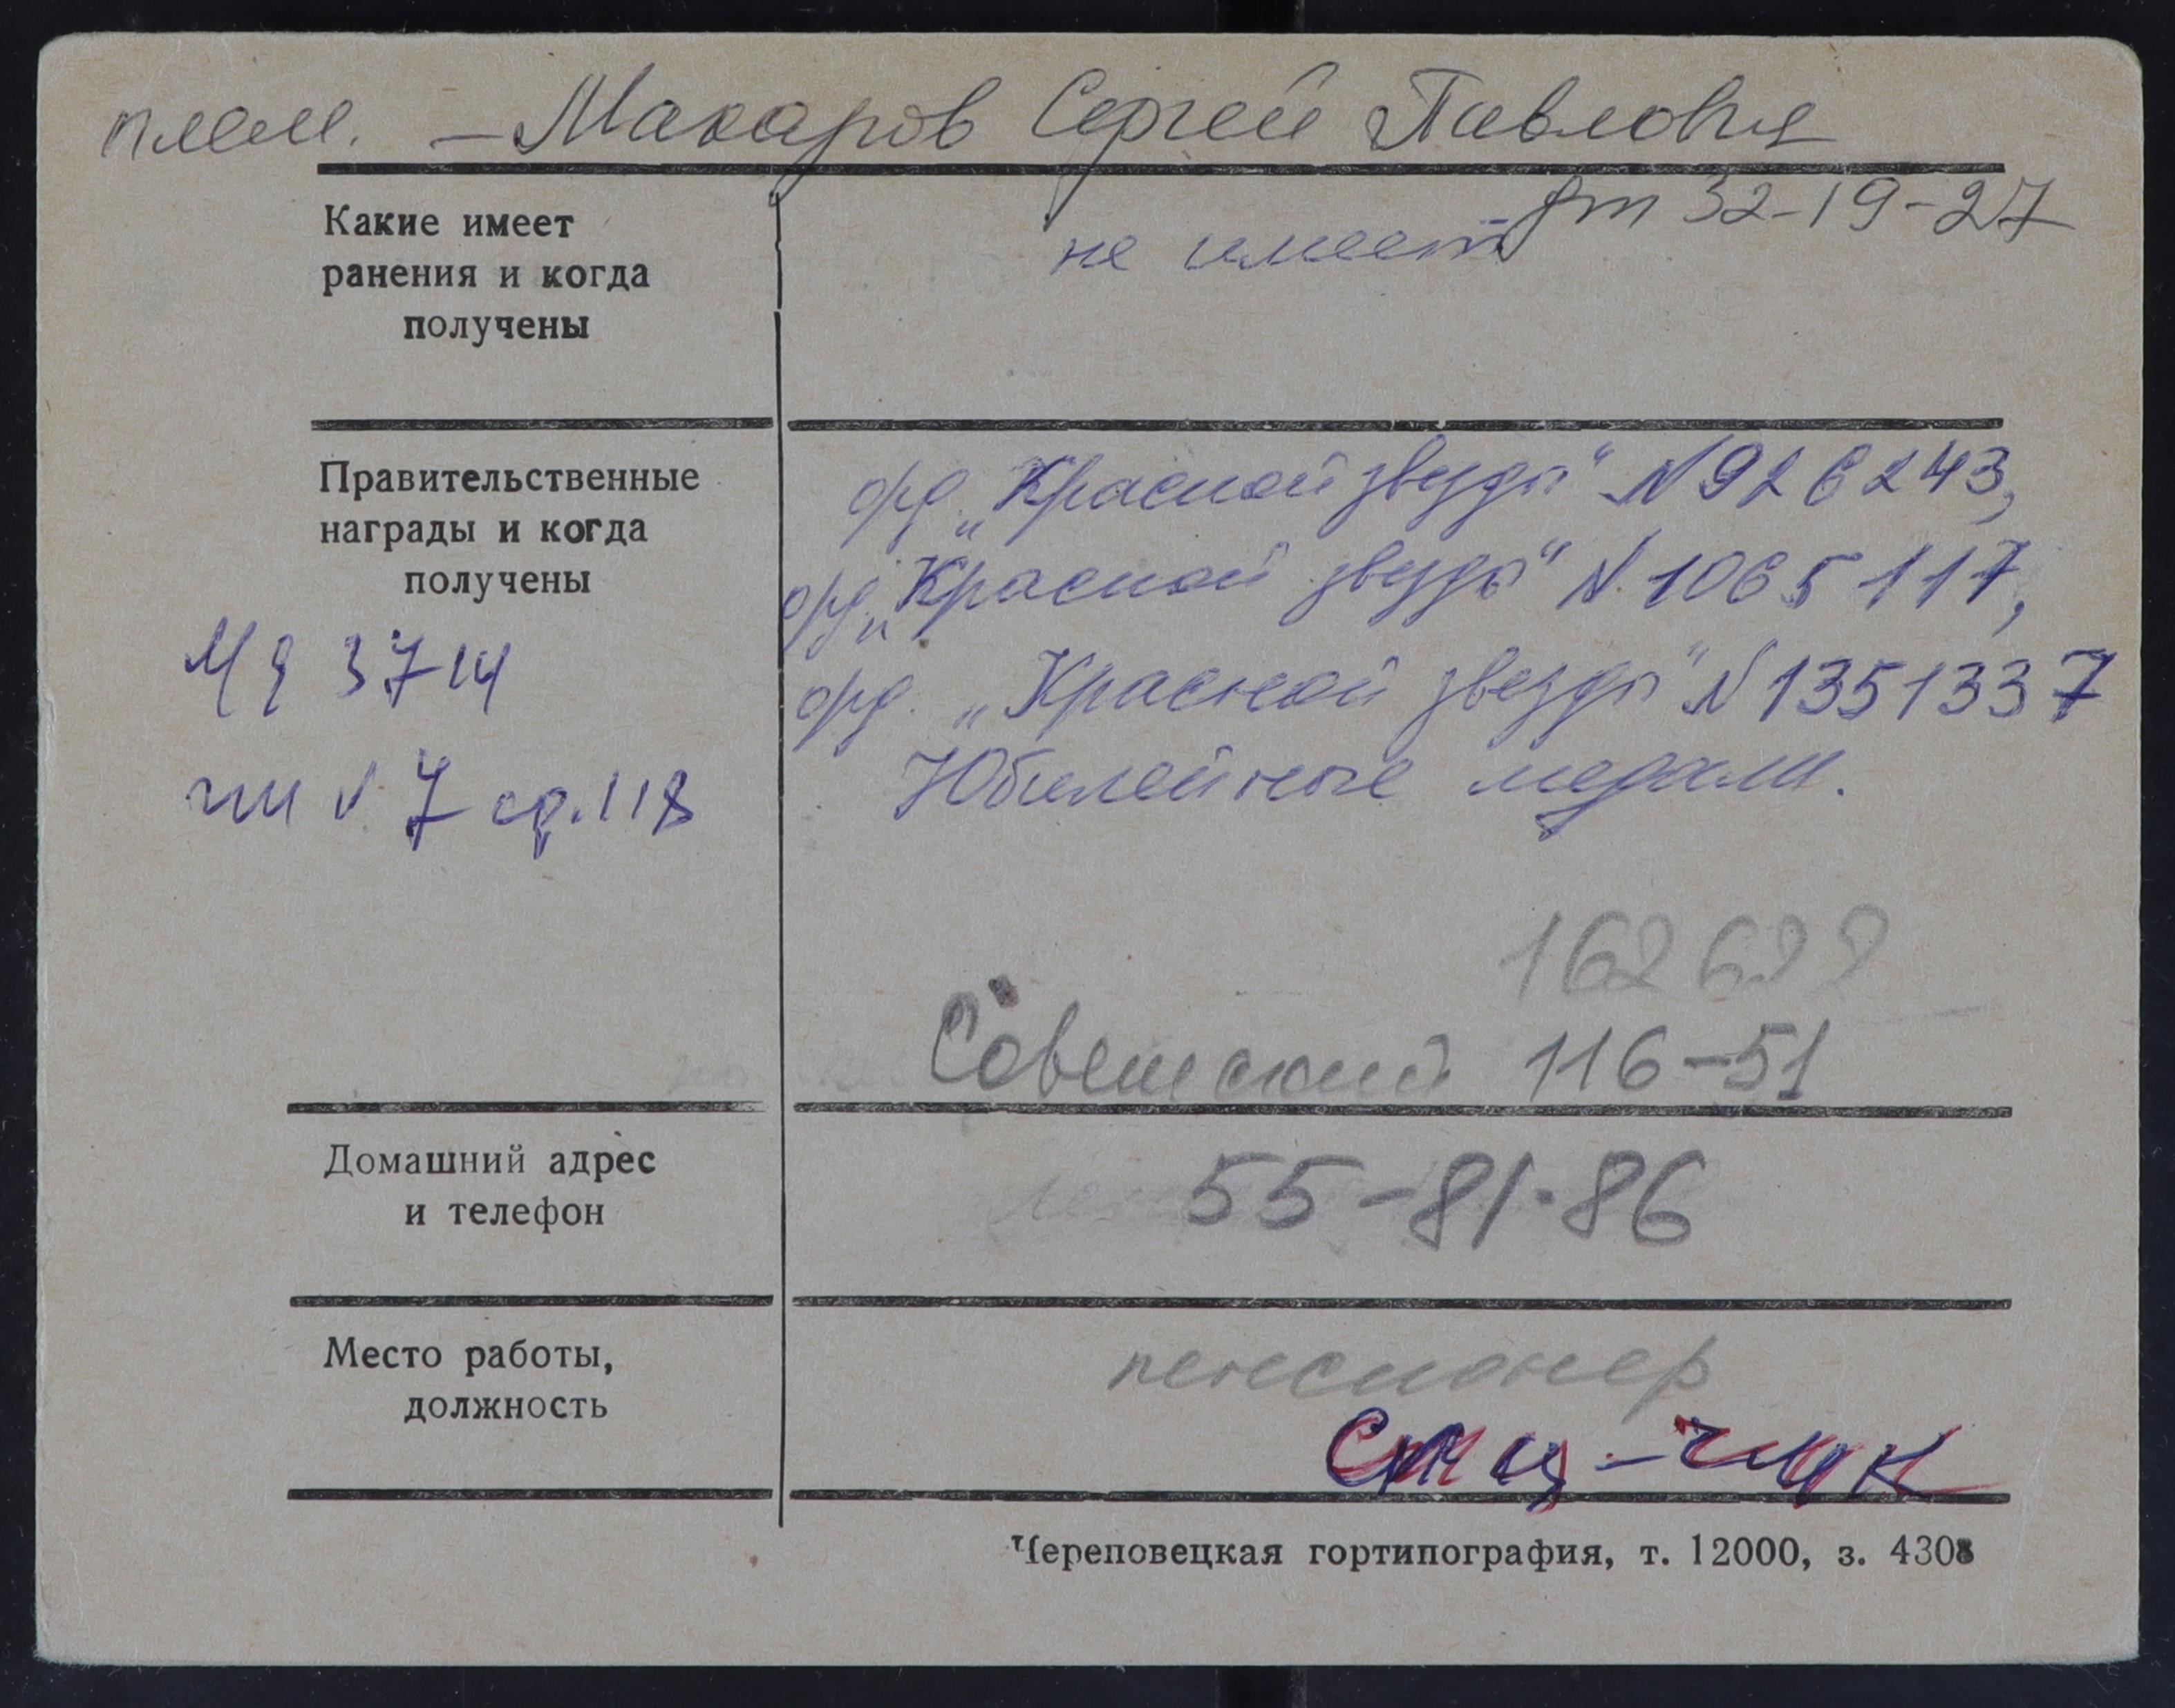 плем. – Макаров Сергей Павлович
дт 32-19-27
Какие имеет
ранения и когда
получены
не имеет
Правительственные
награды и когда
получены
орд. „Красной звезды" N 926243,
орд. „Красной звезды" N 1065117,
орд. „Красной звезды" N 1351337
Юбилейные медали.
МЯ 3714
N 7 ср. 118
Советский 116-51
Домашний адрес
и телефон
55-81-86
Место работы,
должность
пенсионер
Череповецкая гортипография, т. 12000, з. 4308